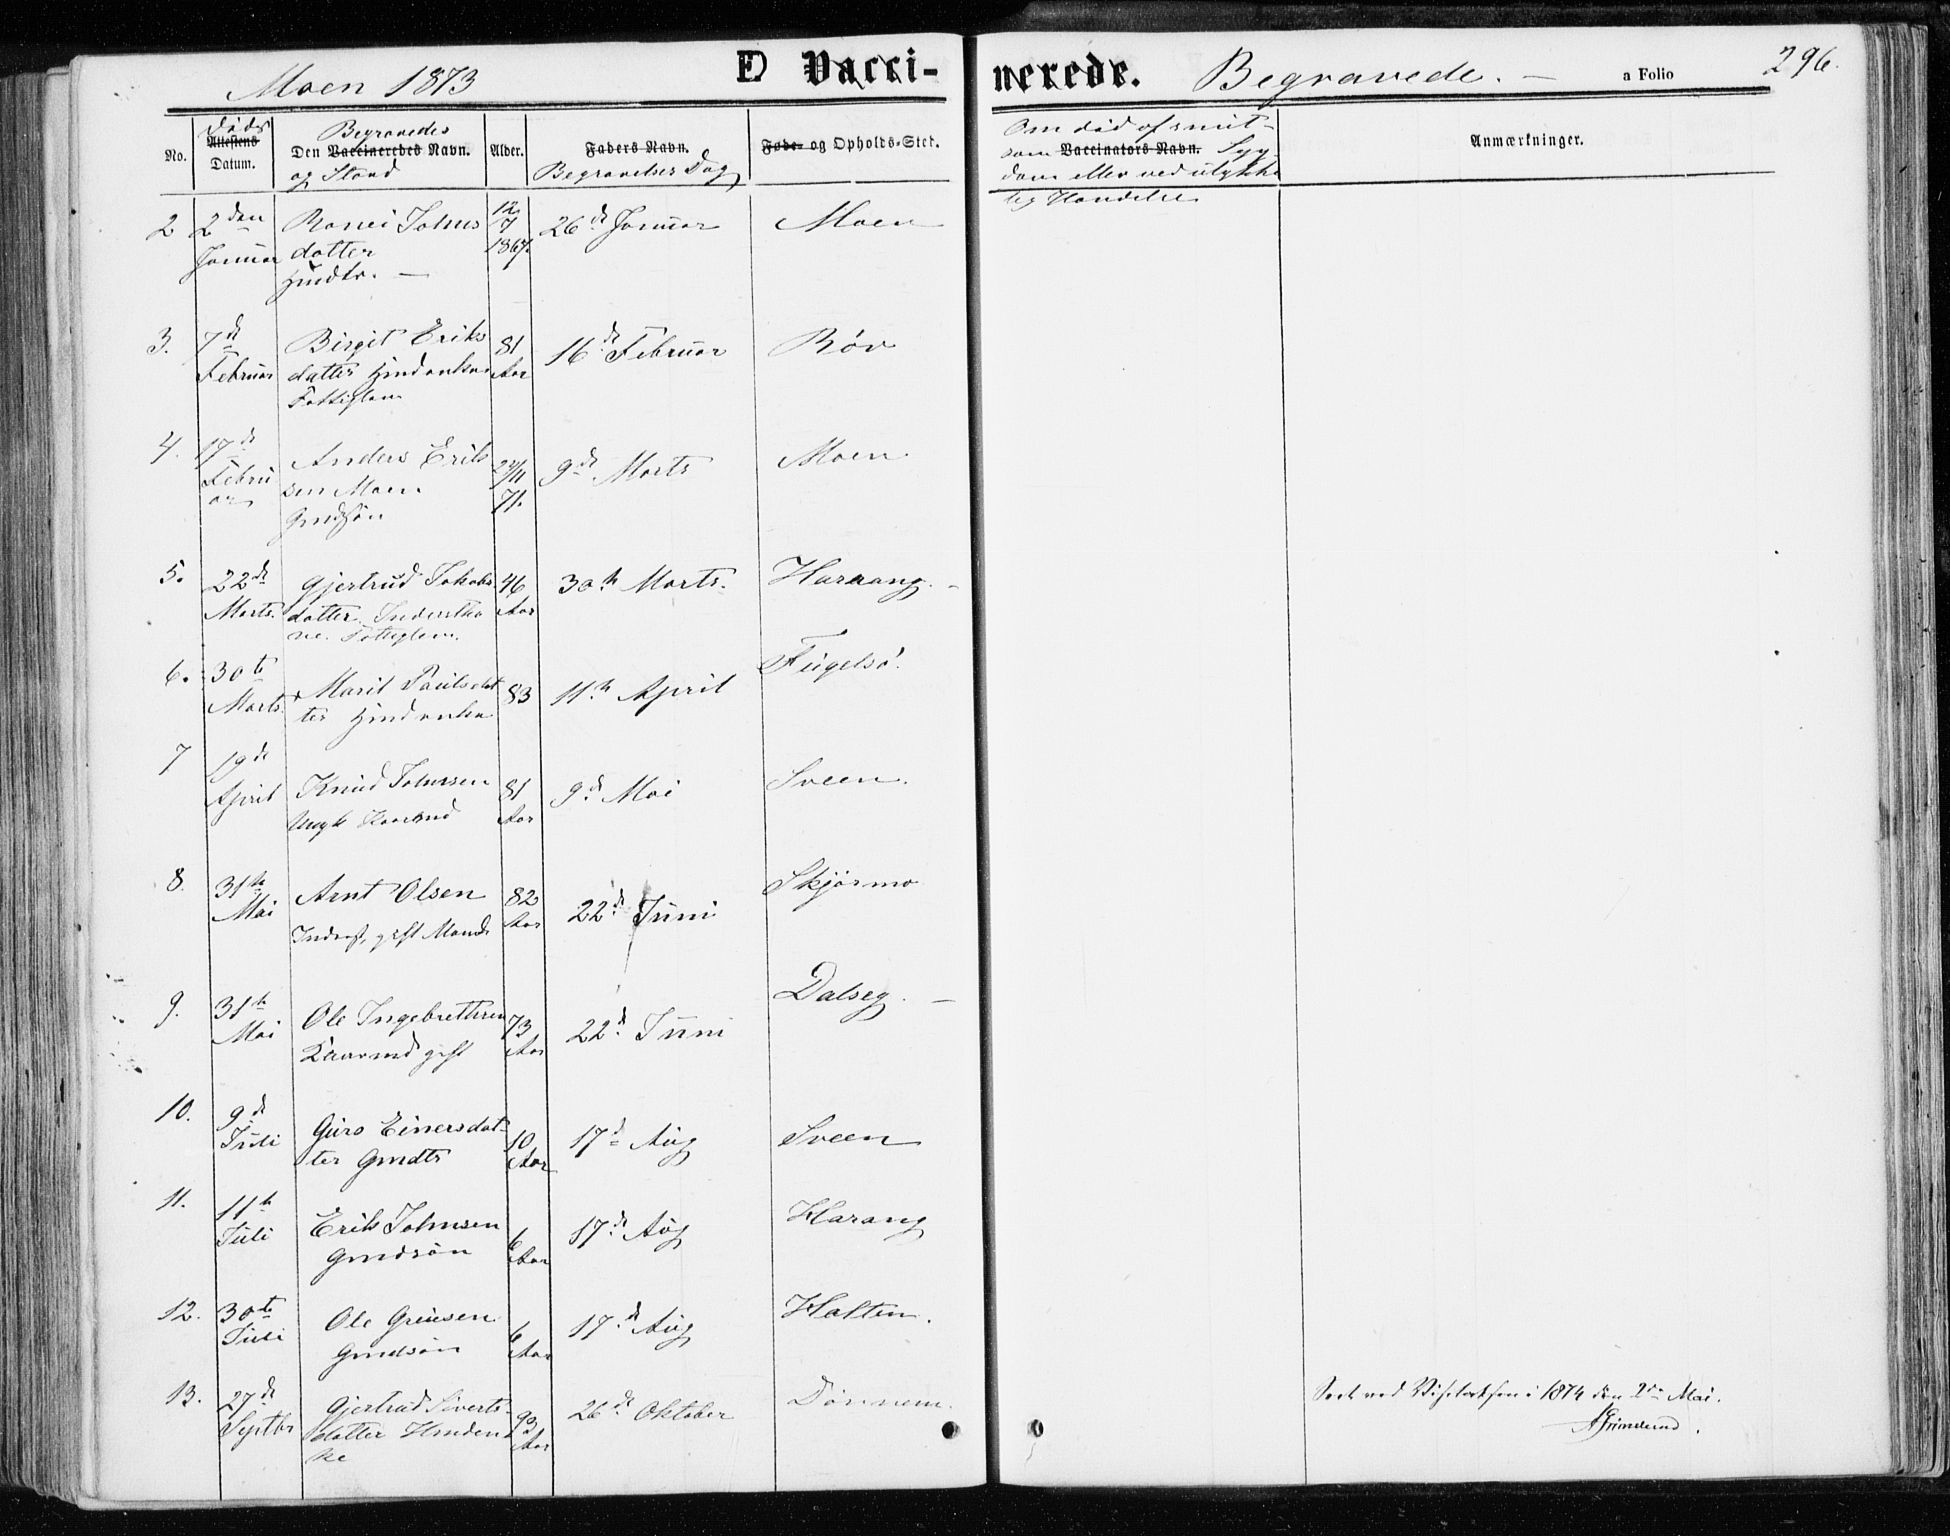 Moen 1873
E Vacci-
nerede. Begravede. — a Folio 296.
No.
Døds
Attestens
Datum.
Begravedes
Den Vaccineredes Navn.
og Stand
Alder.
Faders Navn.
Begravelses Dag
Føde- og Opholds-Sted.
Om død af smit-
som Vaccinators Navn. Syg
dom eller ved ulykke
lig Hændelse
Anmærkninger.
2 2den Ronei Johns 12/7 26de Januar Moen
Januar datter 1867.
Gmdtr. —
3. 7de Birgit Eriks 81 16de Februar Röv
Februar datter Gmdenke Aar
Fattiglem
4. 17de Anders Erik 24/11 9de Marts Moen.
Febru sen Moen 71.
ar Gmdsön
5. 22de Gjertrud Jakobs 46 30te Marts. Haraang. —
Marts. datter Inderstko Aar
ne. Fattiglem.
6. 30te Marit Paulsdat 83 11te April Fugelsö.
Marts. ter Gmdenke
7 19de Knud Johnsen 81 9de Mai Sveen.
April Ungk Kaarmd Aar
8. 31te Arnt Olsen 82 22de Juni Skjörmo
Mai Inderst, gift Mand Aar
9. 31te Ole Ingebrettsen 73 22de Juni Dalseg. —
Mai Kaarmd gift Aar
10. 9de Guro Einersdat- 10 17de Aug Sveen
Juli ter Gmdtr Aar
11. 11te Erik Johnsen 6 17de Aug Harang
Juli Gmdsön Aar
12. 30te Ole 6 17de Aug Halten.
Juli Gmdsön Aar
13. 27de Gjertrud Siverts- 93 26de Oktober Dönnem.
Septbr datter Gmden Aar
ke
Seet ved Visitatsen i 1874 den 2den Mai.
AGrimelund.